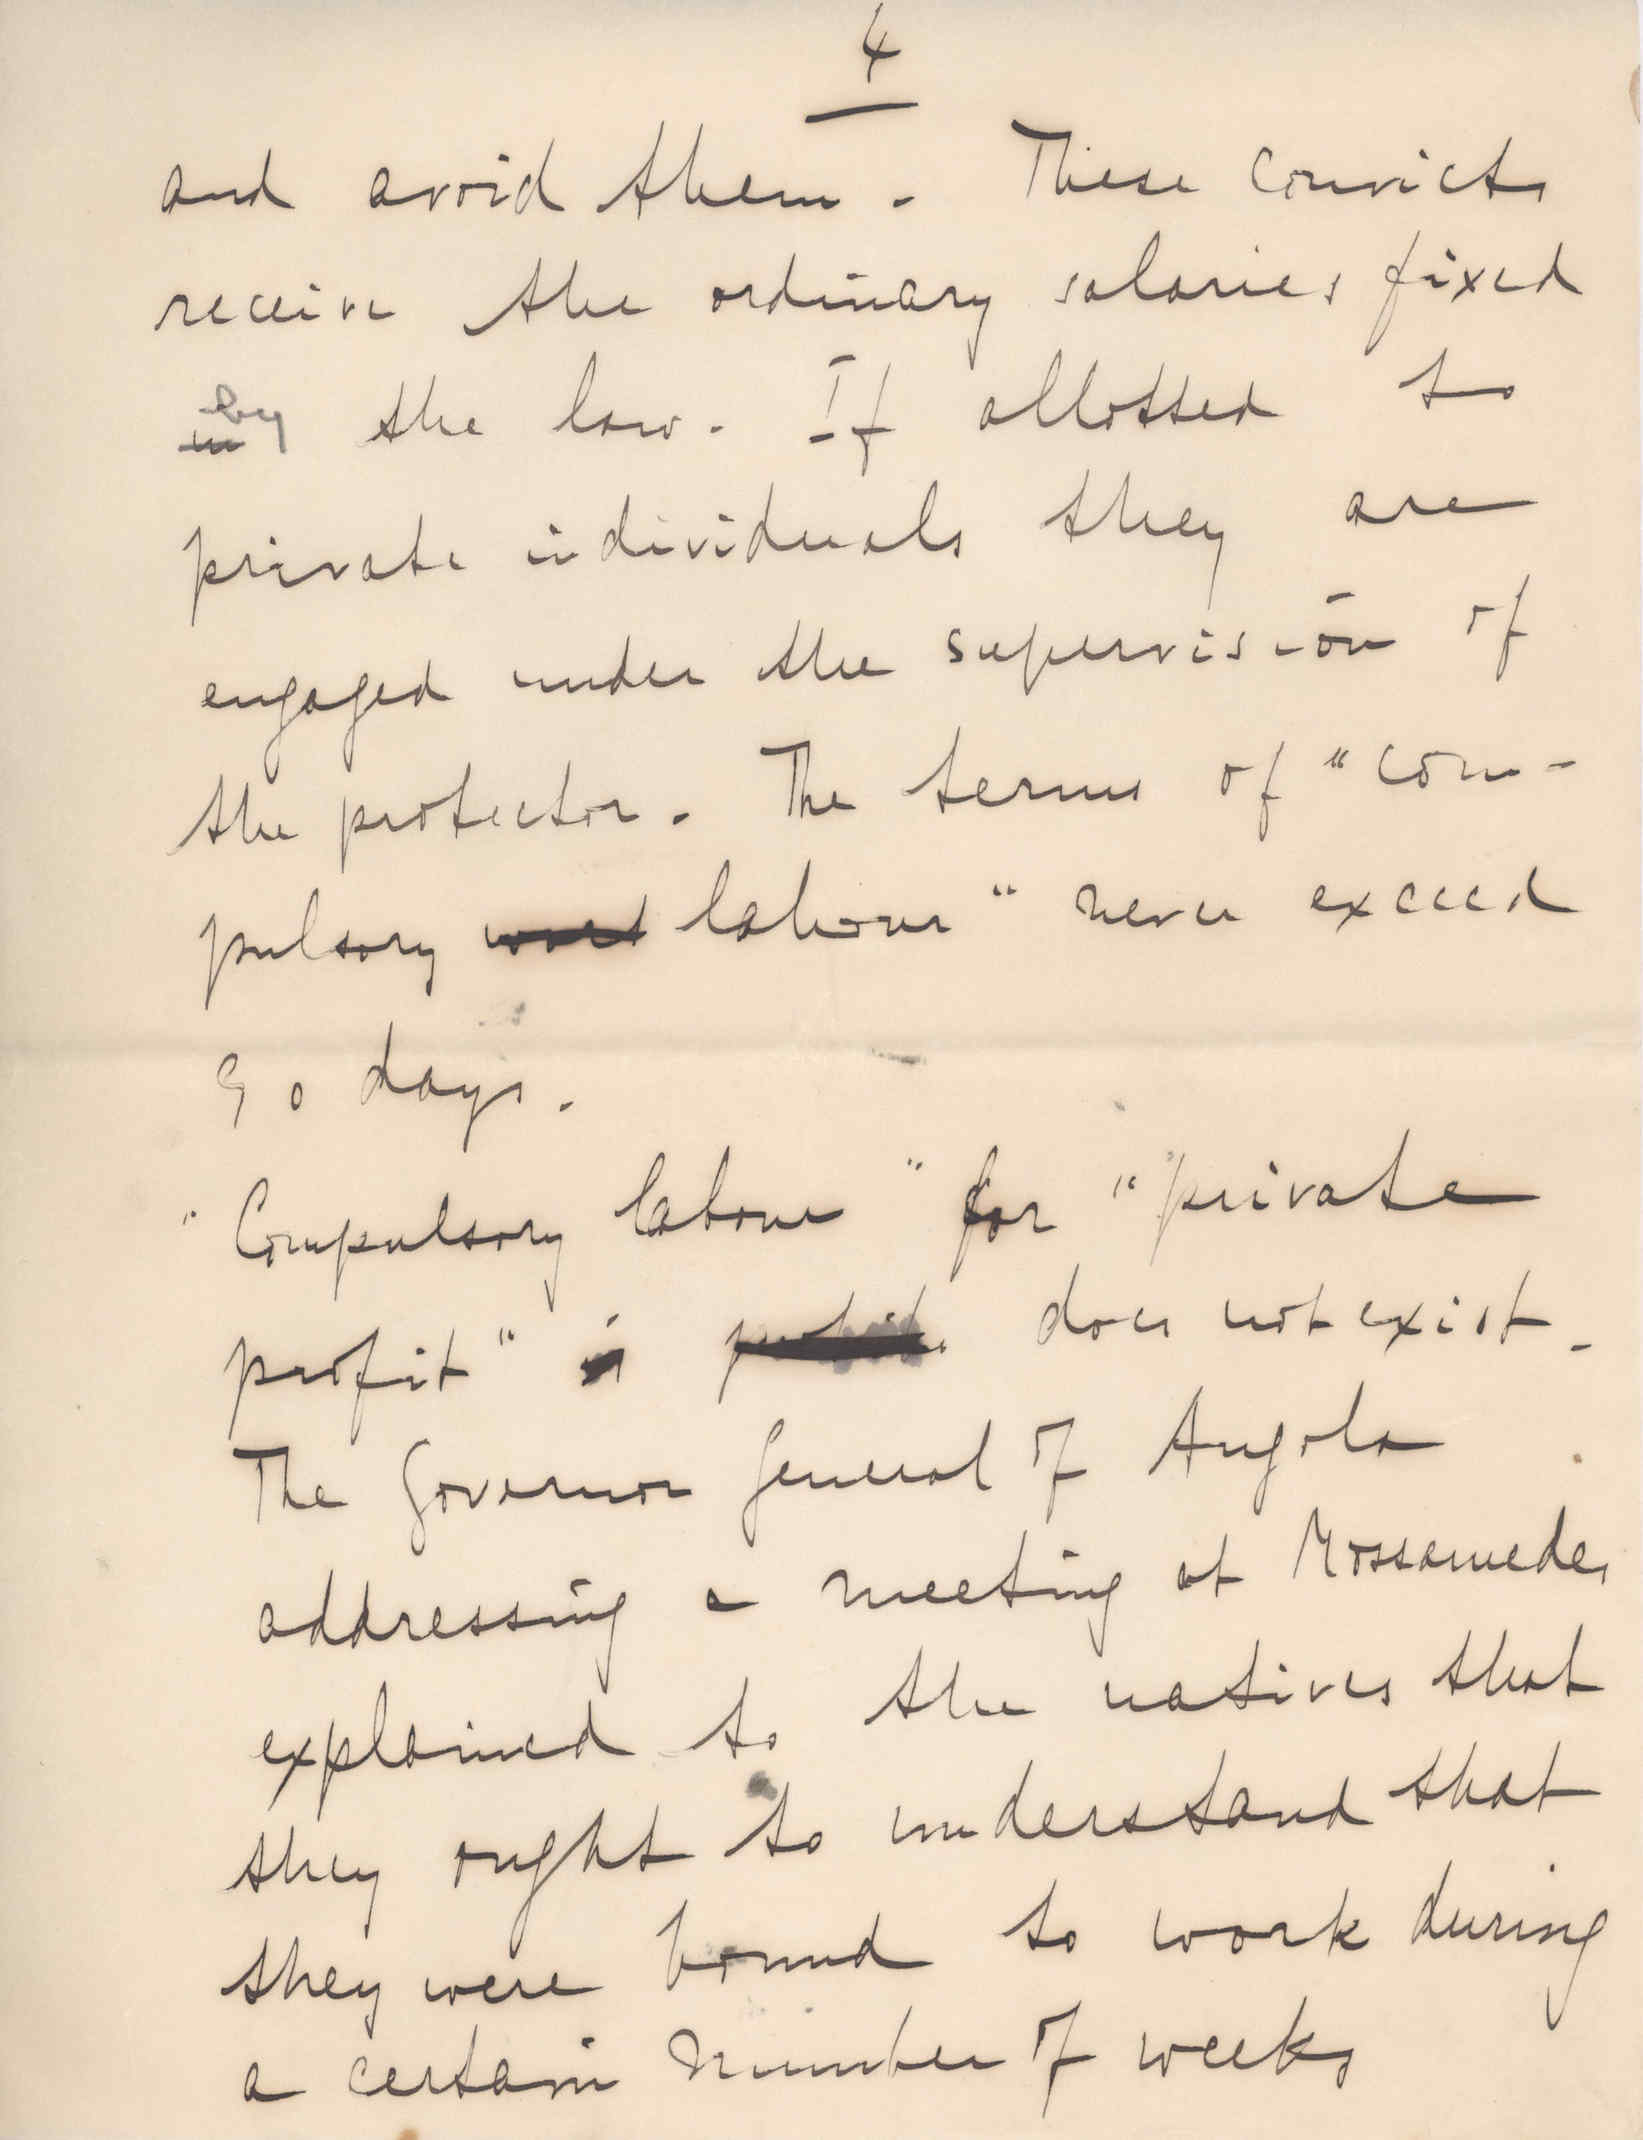 4
and avoid them. These convicts
receive the ordinary salaries fixed
in by the law. If allotted to
private individuals they are
engaged under the supervision of
the protector. The terms of "com-
pulsory work labour" never exceed
90 days.
"Compulsory labour" for "private
profit" is does not exist.
The Governor General of Angola
addressing a meeting at Mossamedes
explained to the natives that
they ought to understand that
they were bound to work during
a certain number of weeks